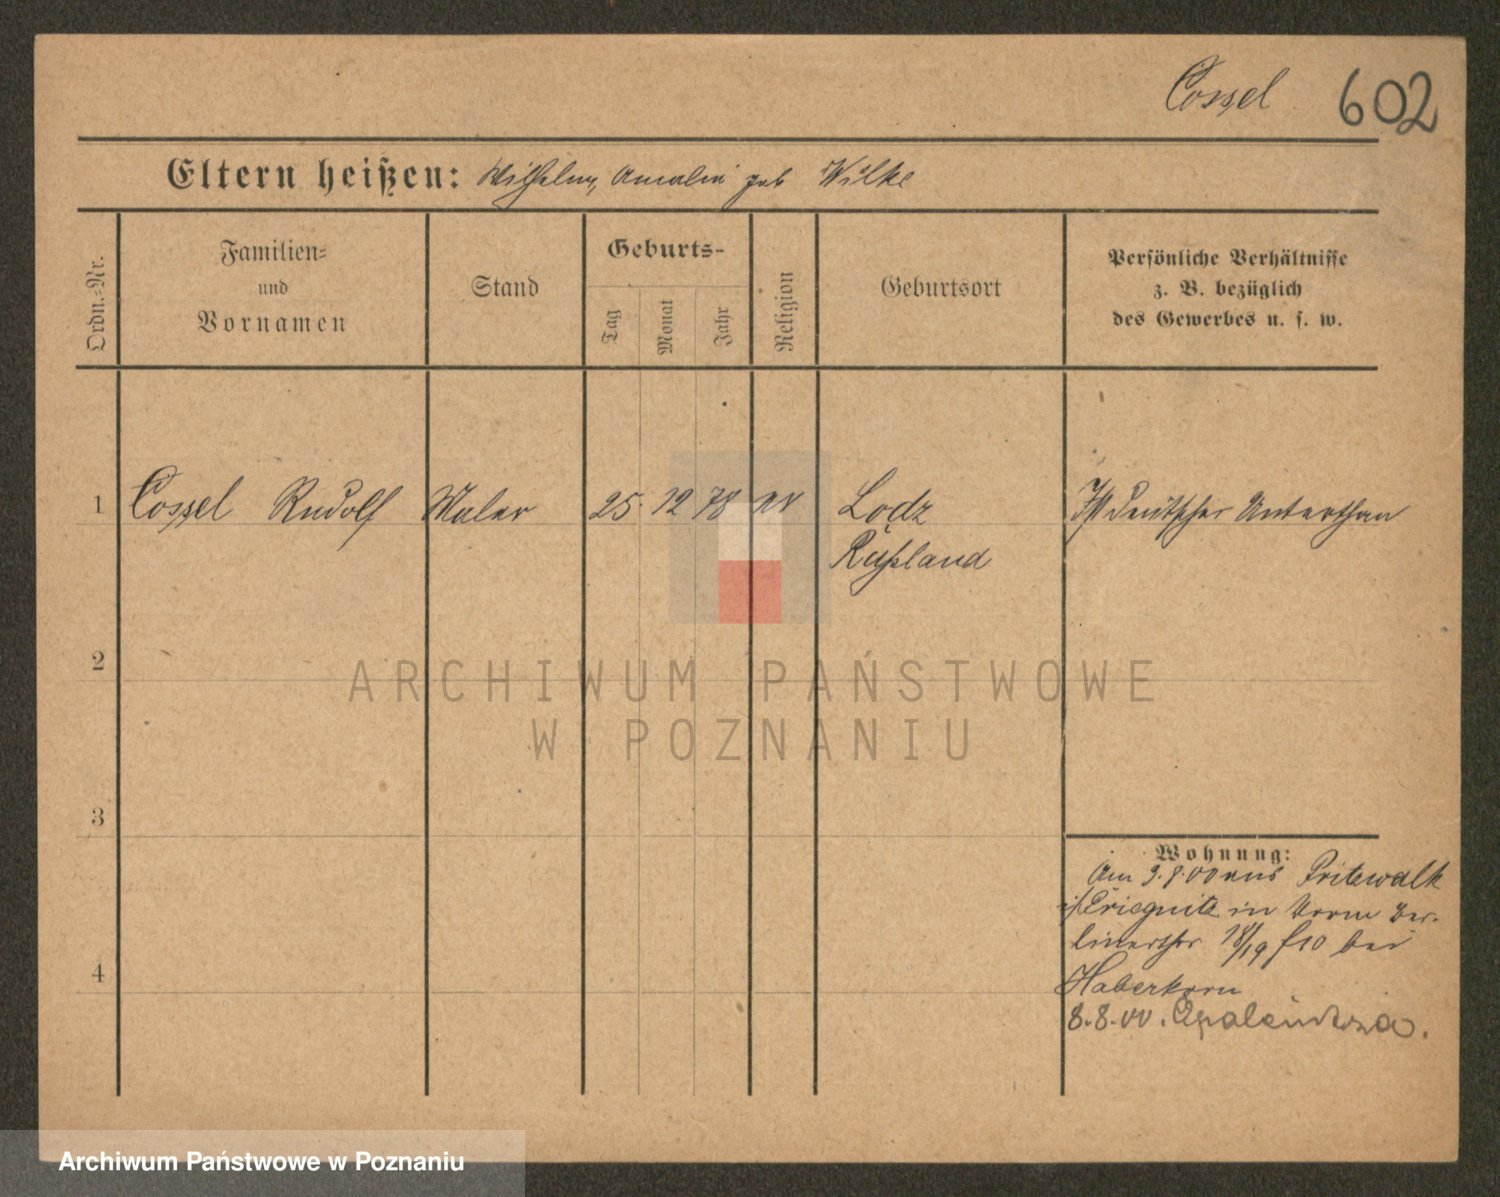 Cossel 602
Eltern heißen: Wilhelm, Amalie geb Wilke
Ordn.-Nr.
Familien-
und
Vornamen
Stand
Geburts-
Tag
Monat
Jahr
Religion
Geburtsort
Persönliche Verhältnisse
z. B. bezüglich
des Gewerbes u. s. w.
1 Cossel Rudolf Maler 25. 12 78 ev Lodz Ist deutscher Unterthan
Rußland
2
ARCHIWUM PAŃSTWOWE
W POZNANIU
3
Wohnung:
Am 3.8.00 aus Pritzwalk
i/Priegnitz in Ber-
linerthor 18/19 bei
Haberkorn
4
8.8.00. Opalenitza.
Archiwum Państwowe w Poznaniu